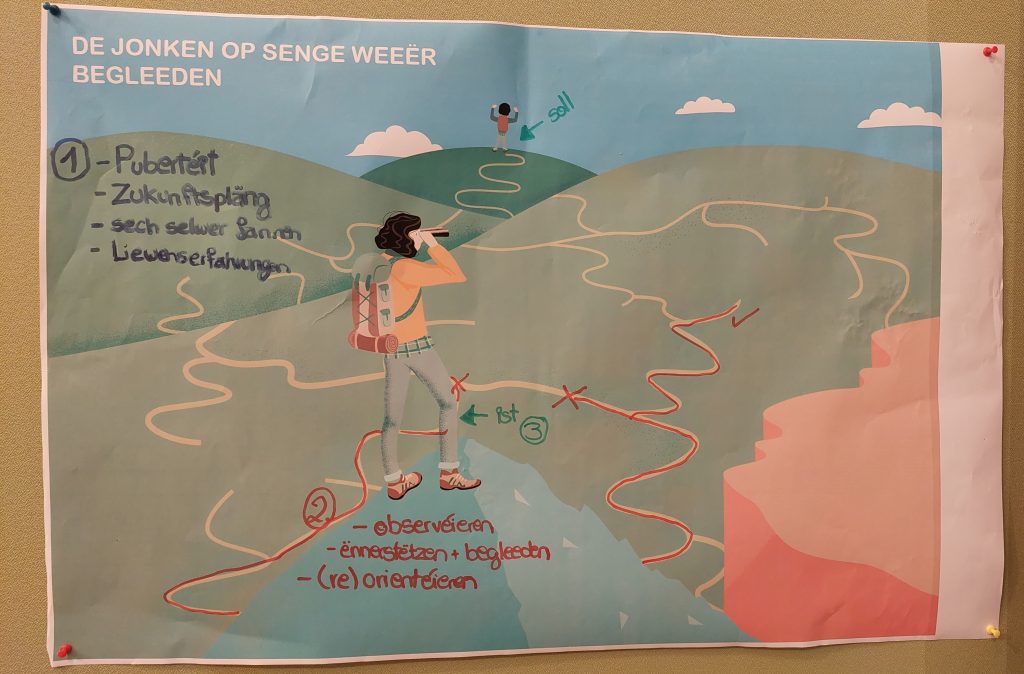 DE JONKEN OP SENGE WEEËR
BEGLEEDEN
soll
1 - Pubertéit
- Zukunftspläng
- sech selwer fannen
- Liewenserfahrungen
ist 3
2 - observéieren
- ënnerstëtzen + begleeden
- (re) orientéieren